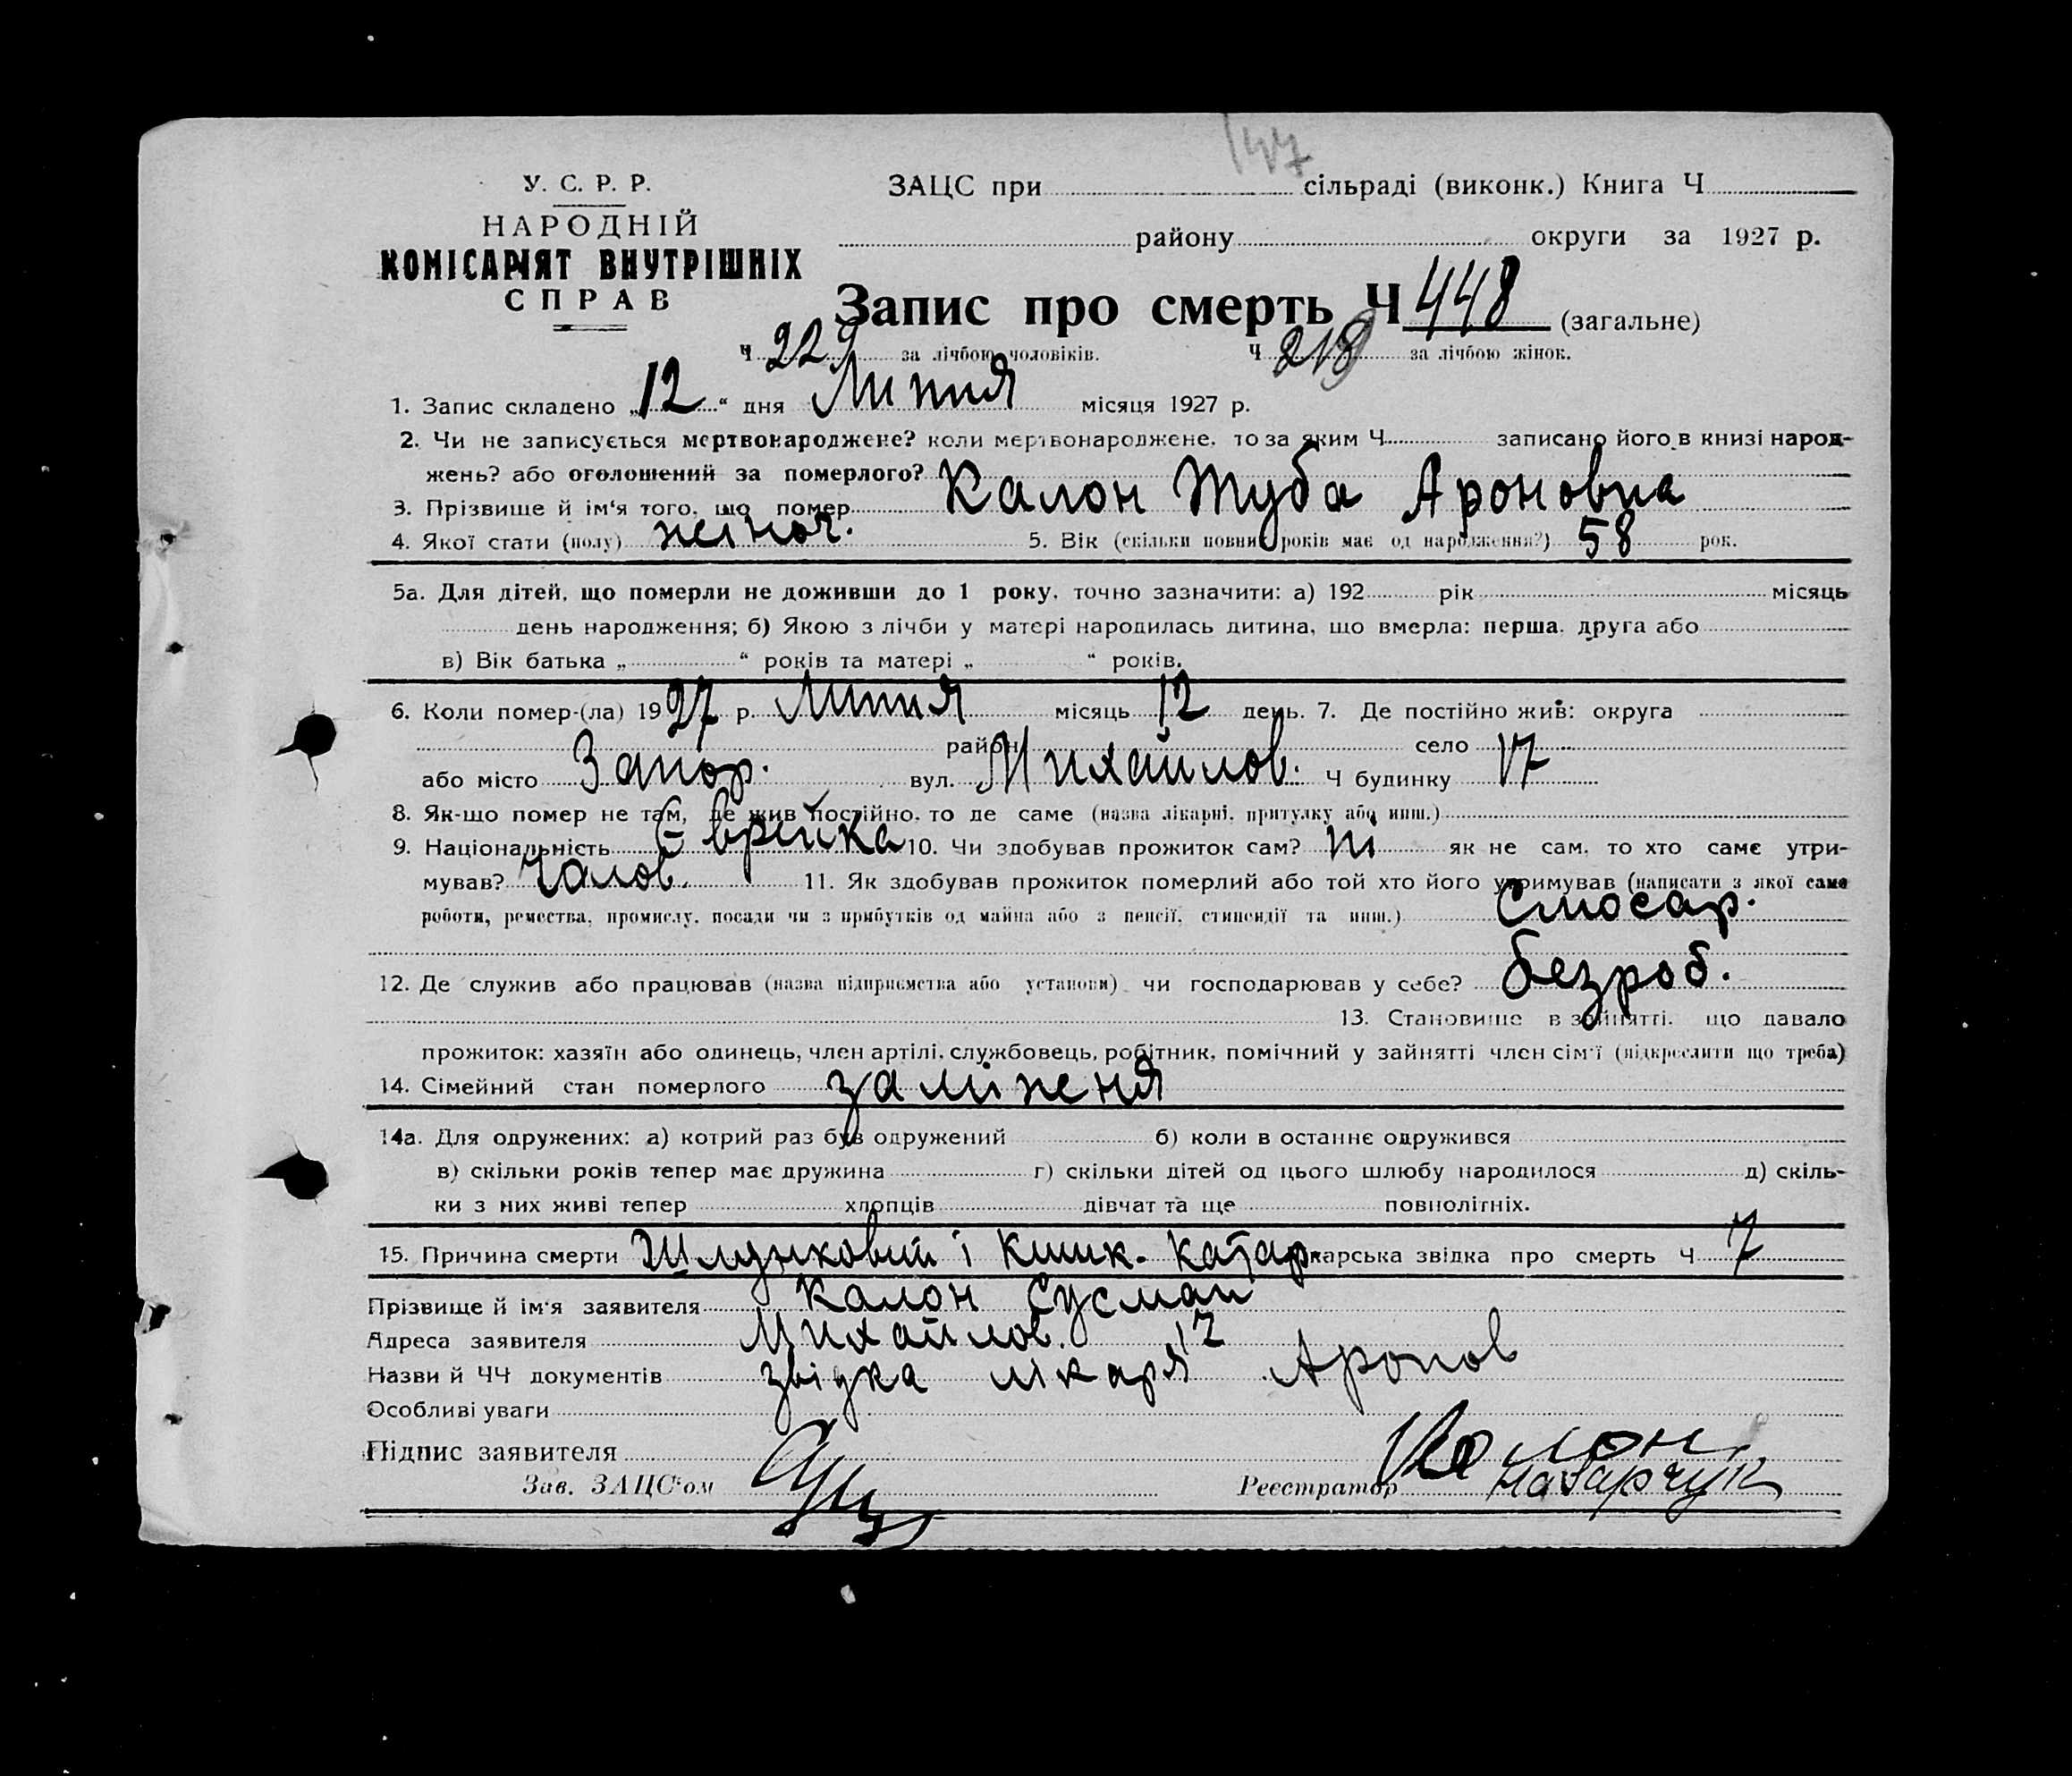 147
У. С. Р. Р.
НАРОДНІЙ
КОМІСАРІЯТ ВНУТРІШНІХ
СПРАВ
ЗАЦС при сільраді (виконк.) Книга Ч
району округи за 1927 р.
Запис про смерть Ч 448 (загальне)
Ч 229 за лічбою чоловіків. Ч 218 за лічбою жінок.
1. Запис складено „12“ дня Липня місяця 1927 р.
2. Чи не записується мертвонароджене? коли мертвонароджене, то за яким Ч записано його в книзі народ-
жень? або оголошений за померлого?
3. Прізвище й ім‘я того, що помер Калон Туба Ароновна
4. Якої стати (полу) жіноч. 5. Вік (скільки повних років має од народження?) 58 рок.
5а. Для дітей, що померли не доживши до 1 року, точно зазначити: а) 192 рік місяць
день народження; б) Якою з лічби у матері народилась дитина, що вмерла: перша, друга або
в) Вік батька „ “ років та матері „ “ років.
6. Коли помер-(ла) 1927 р. Липня місяць 12 день. 7. Де постійно жив: округа
район село
або місто Запор. вул. Михайлов. Ч будинку 17
8. Як-що помер не там, де жив постійно, то де саме (назва лікарні, притулку або инш.)
9. Національність Єврейка 10. Чи здобував прожиток сам? ні як не сам, то хто саме утри-
мував? Чолов. 11. Як здобував прожиток померлий або той хто його утримував (написати з якої саме
роботи, ремества, промислу, посади чи з прибутків од майна або з пенсії, стипендії та инш.) Слюсар.
12. Де служив або працював (назва підприємства або установи) чи господарював у себе? безроб.
13. Становище в зайнятті, що давало
прожиток: хазяїн або одинець, член артілі, службовець, робітник, помічний у зайнятті член сім‘ї (підкреслити що треба)
14. Сімейний стан померлого заміжня
14а. Для одружених: а) котрий раз був одружений б) коли в останнє одружився
в) скільки років тепер має дружина г) скільки дітей од цього шлюбу народилося д) скіль-
ки з них живі тепер хлопців дівчат та ще повнолітніх.
15. Причина смерти Шлунковий і Кишк. катар лікарська звідка про смерть Ч 7
Прізвище й ім‘я заявителя Калон Сусман
Адреса заявителя Михайлов. 17
Назви й ЧЧ документів звідка лікаря Аронов
Особливі уваги
Підпис заявителя Калон
Зав. ЗАЦС‘ом Реєстратор Назарчук